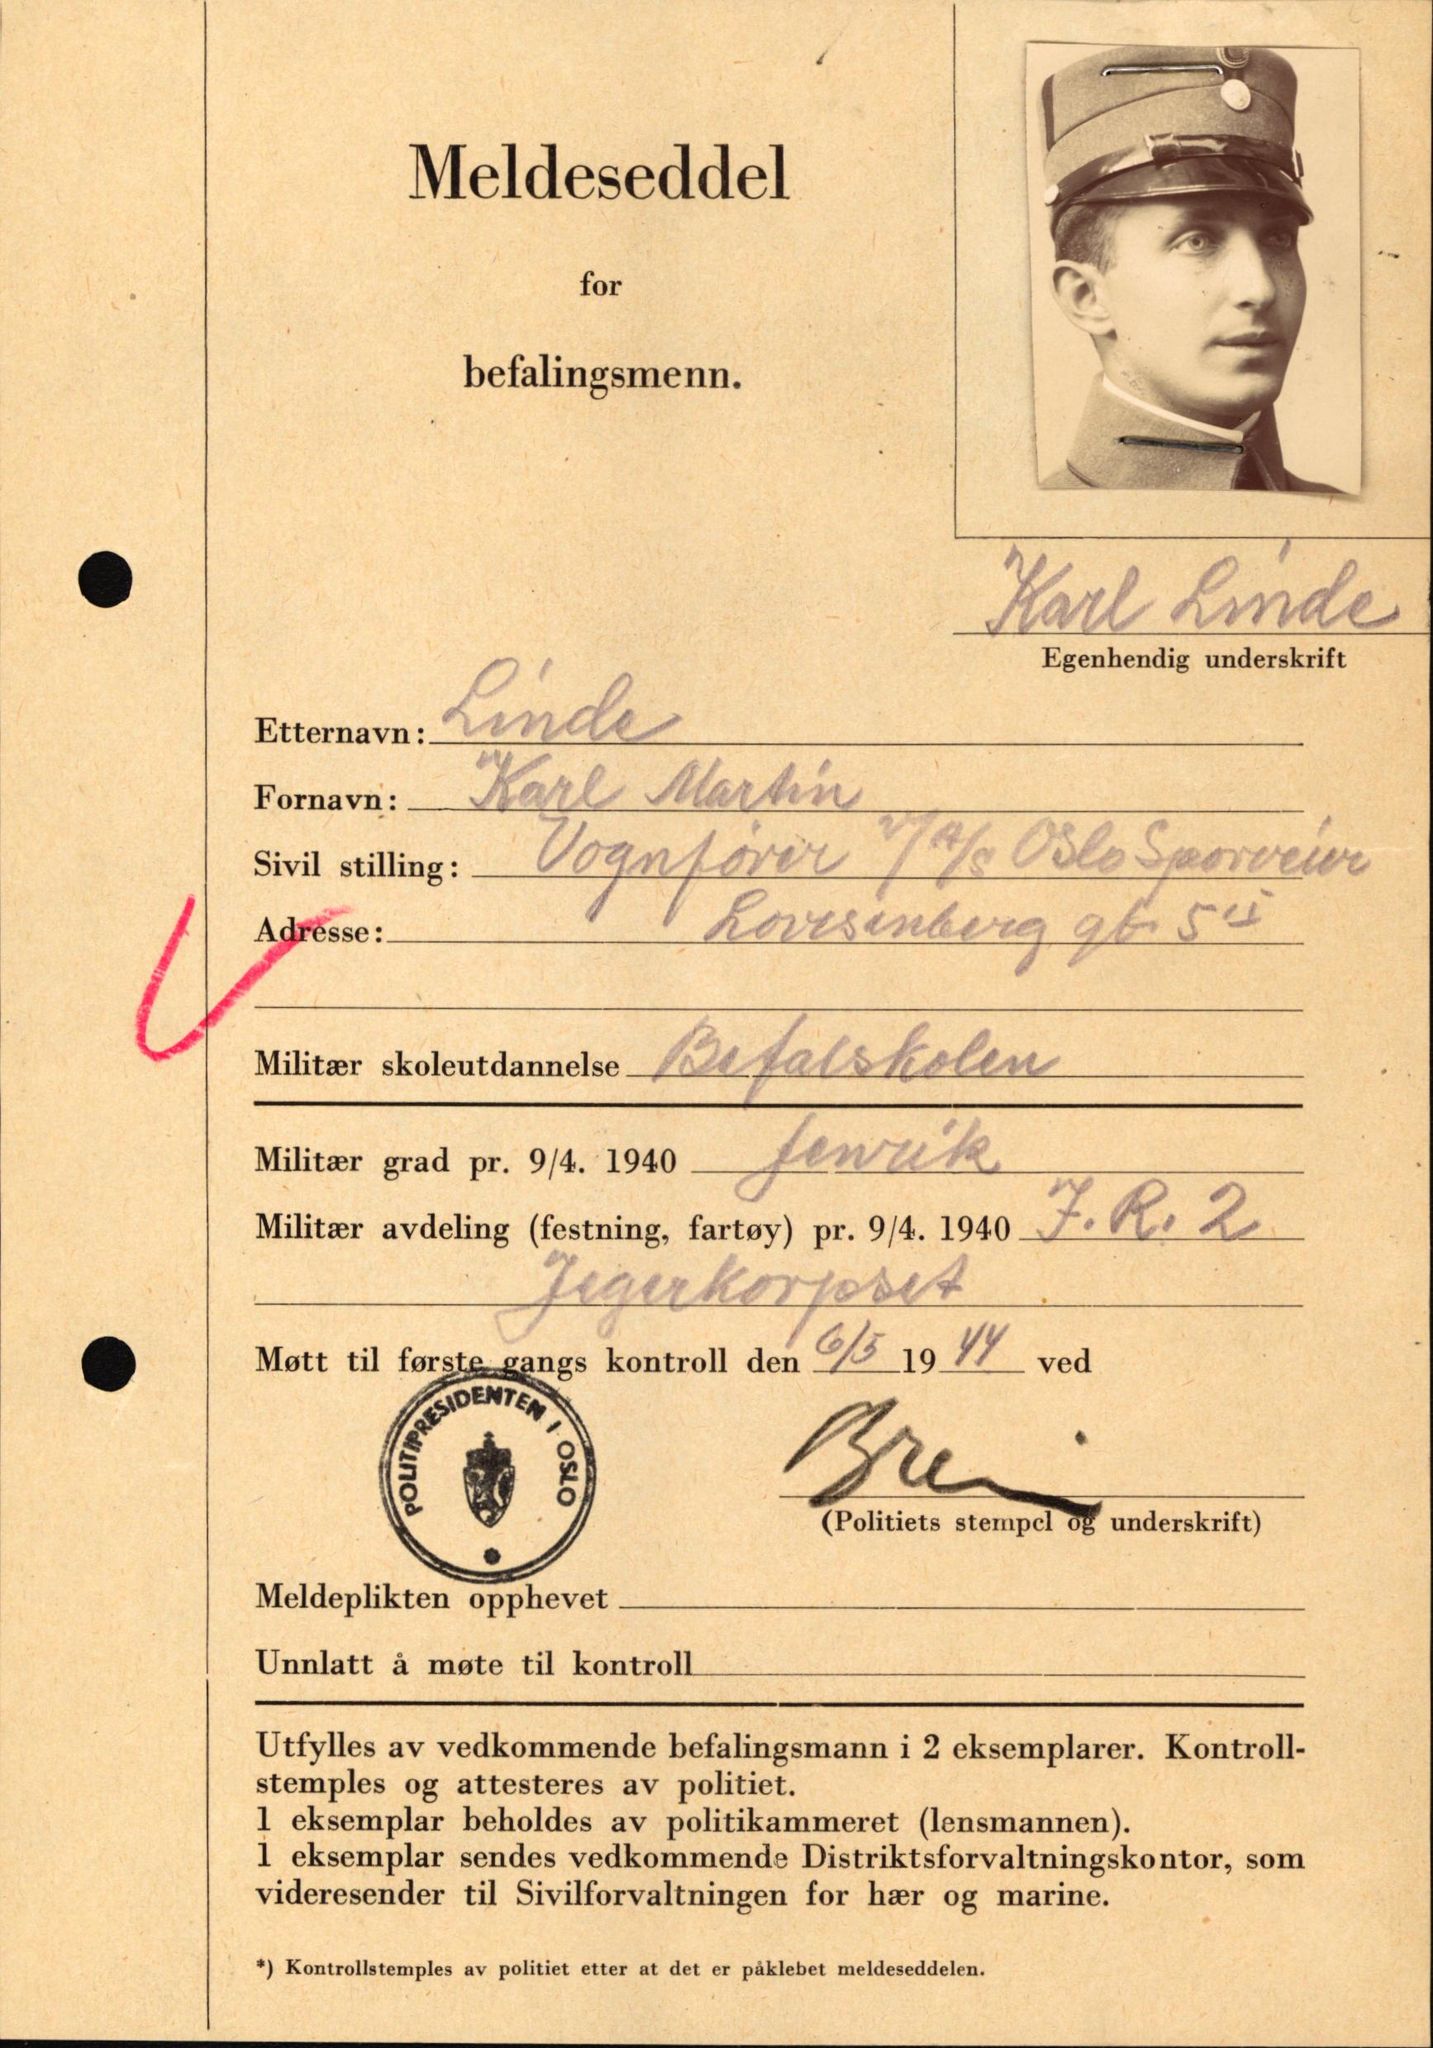 Meldeseddel
for
befalingsmenn.
Karl Linde
Egenhendig underskrift
Etternavn: Linde
Fornavn: Karl Martin
Sivil stilling: Vognfører v/A/S Oslo Sporveier
Adresse: Lovisenberg gt. 5 II
Militær skoleutdannelse Befalskolen
Militær grad pr. 9/4. 1940 fenrik
Militær avdeling (festning, fartøy) pr. 9/4. 1940 J. R. 2
Jegerkorpset
Møtt til første gangs kontroll den 6/5 1944 ved
POLITIPRESIDENTEN I OSLO
(Politiets stempel og underskrift)
Meldeplikten opphevet
Unnlatt å møte til kontroll
Utfylles av vedkommende befalingsmann i 2 eksemplarer. Kontroll-
stemples og attesteres av politiet.
1 eksemplar beholdes av politikammeret (lensmannen).
1 eksemplar sendes vedkommende Distriktsforvaltningskontor, som
videresender til Sivilforvaltningen for hær og marine.
*) Kontrollstemples av politiet etter at det er påklebet meldeseddelen.